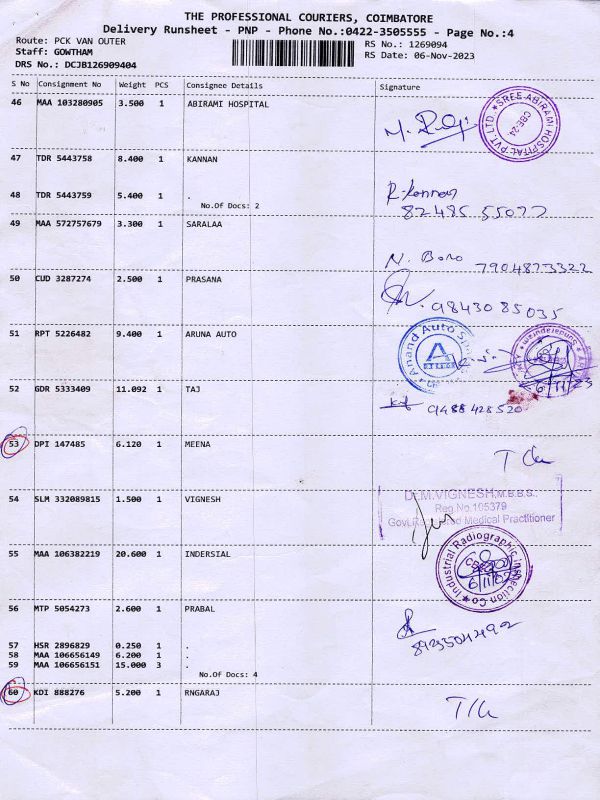 THE PROFESSIONAL COURIERS, COIMBATORE
Delivery Runsheet - PNP - Phone No.:0422-3505555 - Page No.:4
Route: PCK VAN OUTER
RS No.: 1269094
Staff: GOWTHAM
RS Date: 06-Nov-2023
DRS No.: DCJB126909404
S No Consignment No Weight PCS Consignee Details Signature
46 MAA 103280905 3.500 1 ABIRAMI HOSPITAL
SREE ABIRAMI HOSPITAL PVT. LTD. CBE-24
47 TDR 5443758 8.400 1 KANNAN
48 TDR 5443759 5.400 1 .
R-Kannan
No.Of Docs: 2
82485 55077
49 MAA 572757679 3.300 1 SARALAA
7904873322
50 CUD 3287274 2.500 1 PRASANA
9843085035
51 RPT 5226482 9.400 1 ARUNA AUTO
Anand Auto
6/11/23
52 GDR 5333409 11.092 1 TAJ
9488428520
53 DPI 147485 6.120 1 MEENA
54 SLM 332089815 1.500 1 VIGNESH
Dr.M.VIGNESH,M.B.B.S.,
Reg.No.105379
Medical Practitioner
55 MAA 106382219 20.600 1 INDERSIAL
Industrial Radiographic Inspection Co
56 MTP 5054273 2.600 1 PRABAL
57 HSR 2896829 0.250 1 .
58 MAA 106656149 6.200 1 .
59 MAA 106656151 15.000 3 .
No.Of Docs: 4
60 KDI 888276 5.200 1 RNGARAJ